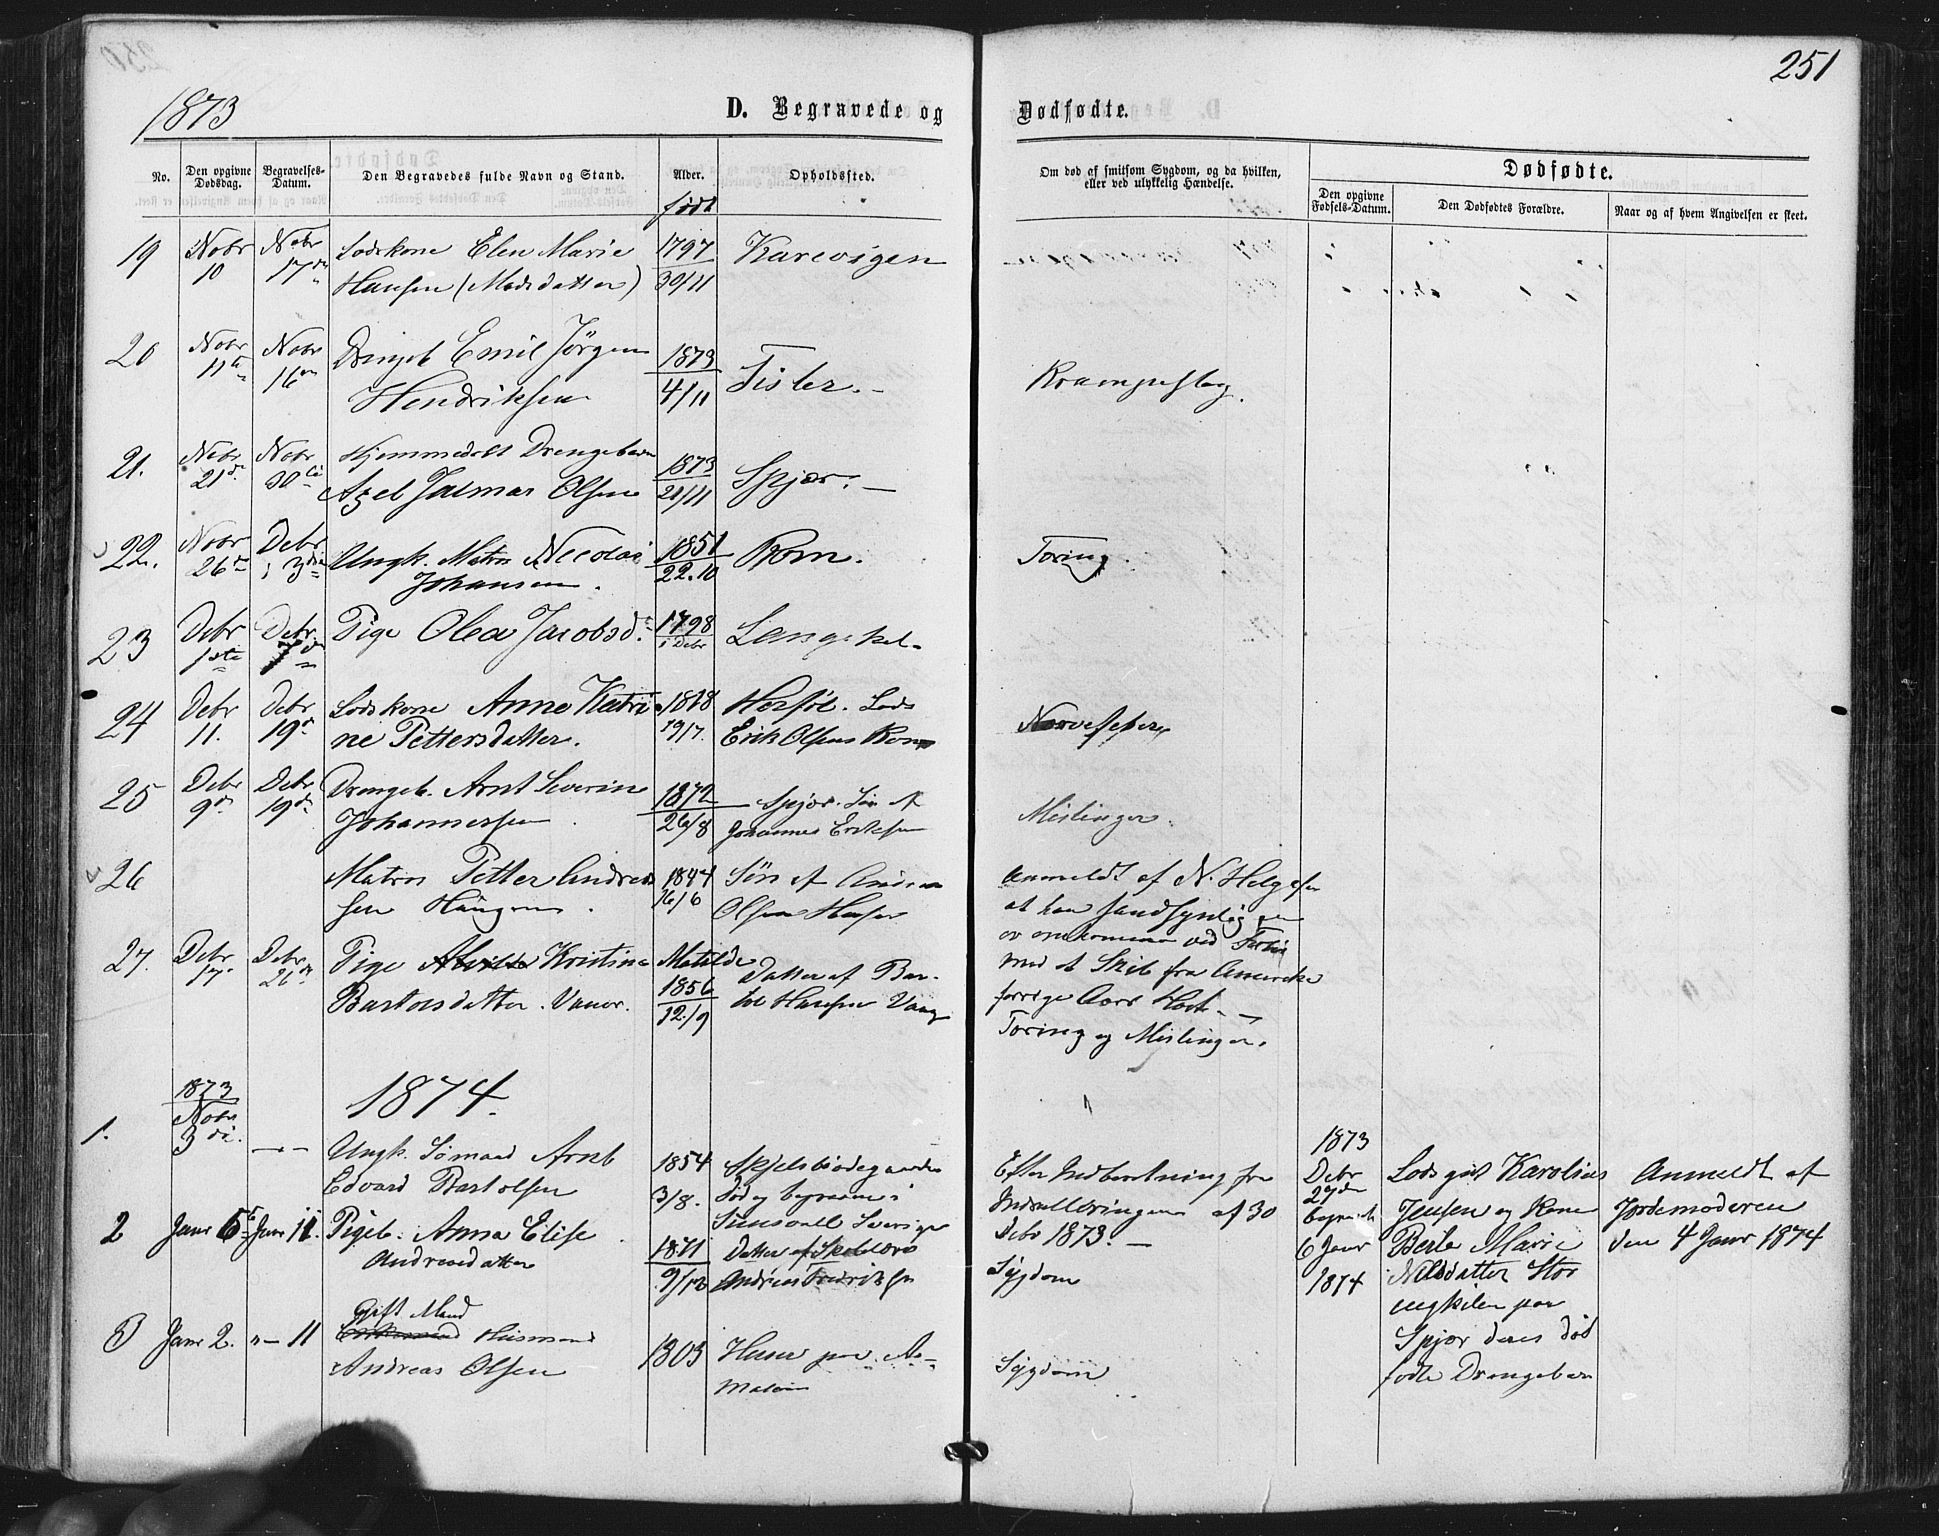 251
1873
D. Begravede og Dødfødte.
No.
Den opgivne Dødsdag.
Begravelses-Datum.
Den Begravedes fulde Navn og Stand.
Alder.
født
Opholdssted.
Om død af smitsom Sygdom, og da hvilken,
eller ved ulykkelig Hændelse.
Dødfødte.
Den opgivne Fødsels-Datum.
Den Dødfødtes Forældre.
Naar og af hvem Angivelsen er skeet.
19 Nobr Nobr Lodskone Elen Marie 1797 Karevigen
10 17de Hansen (Madsdatter) 30/11
20 Nobr Nobr Drengeb Emil Jørgen 1873 Tisler. Krampeslag.
11te 16de Hendriksen 4/11
21. Nobr Nobr Hjemmedøbt Drengebarn 1873 Spjær.
21de 30te Axel Jalmar Olsen 21/11
22. Nobr Debr Ungk. Matros Necolai 1851 Rom. Tæring.
26de 3die Johansen. 22.10
23 Debr Debr Pige Olea Jacobsd. 1798 Langekil.
1ste 7de i Debr
24 Debr Debr Lodskone Anne Katri 1818 Herføl. Lods Nervefeber
11. 19de ne Pettersdatter. 19/7. Erik Olsens Kone
25 Debr Debr Drengeb. Arnt Severin 1872 Spjær. Søn af Mislinger.
9de 19de Johannessen 26/8 Johannes Eriksen
26 Matros Petter Andrea 1844 Søn af Andreas Anmeldt af N. Helgesen
sen Haugene. 16/6 Olsen Huser at han sandsynlig
er omkommen ved Forlis
med et Skib fra Amerika
forrige Aars Høst.
27. Debr Debr Pige Kristine Matilde Datter af Bar-
17. 26de Bartolsdatter. Vauer. 1856 tol Hansen Vauer
12/9 Tæring og Mislinger.
1873 1874.
1. Nobr
3die Ungk. Sømand Arnt 1854 Skjelsbo­degaarden Efter Indberetning fra
Edvard Bartolsen 3/8. Død og begraven i Indrulleringen af 30
Sunsvall Sverige Debr 1873.
2 Janr 5te Janr 11. Pigeb. Anna Elise 1871 Datter af Sygdom
Andreasdatter 9/12 Andreas Fredriksen
3 Janr 2. 11 Gift Mand
Husmand 1803 Huser paa As- Sygdom
Andreas Olsen maløen
1873
Debr
27de
begravet
6 Janr
1874
Lods gut Karolius
Jensen og Kone
Berte Marie
Nilsdatter Stor
engkilen paa
Spjær deres død
fødte Drengebarn
Anmeldt af
Jordemoderen
den 4 Janr 1874